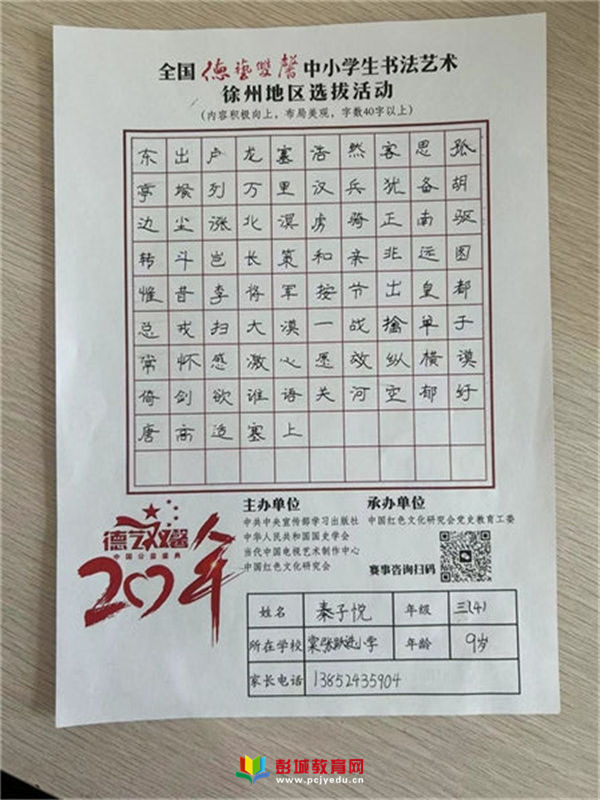 全国德藝雙馨中小学生书法艺术
徐州地区选拔活动
(内容积极向上，布局美观，字数40字以上)
东出卢龙塞浩然客思孤
亭堠列万里汉兵犹备胡
边尘涨北溟虏骑正南驱
转斗岂长策和亲非远图
惟昔李将军按节出皇都
总戎扫大漠一战擒单于
常怀感激心愿效纵横谟
倚剑欲谁语关河空郁纡
唐高适塞上
德艺双馨
中国公益盛典
20年
主办单位
中共中央宣传部学习出版社
中华人民共和国国史学会
当代中国电视艺术制作中心
中国红色文化研究会
承办单位
中国红色文化研究会党史教育工委
赛事咨询扫码
姓名 秦子悦 年级 三(4)
所在学校 小学 年龄 9岁
家长电话 13852435904
彭城教育网
www.pcjyedu.cn